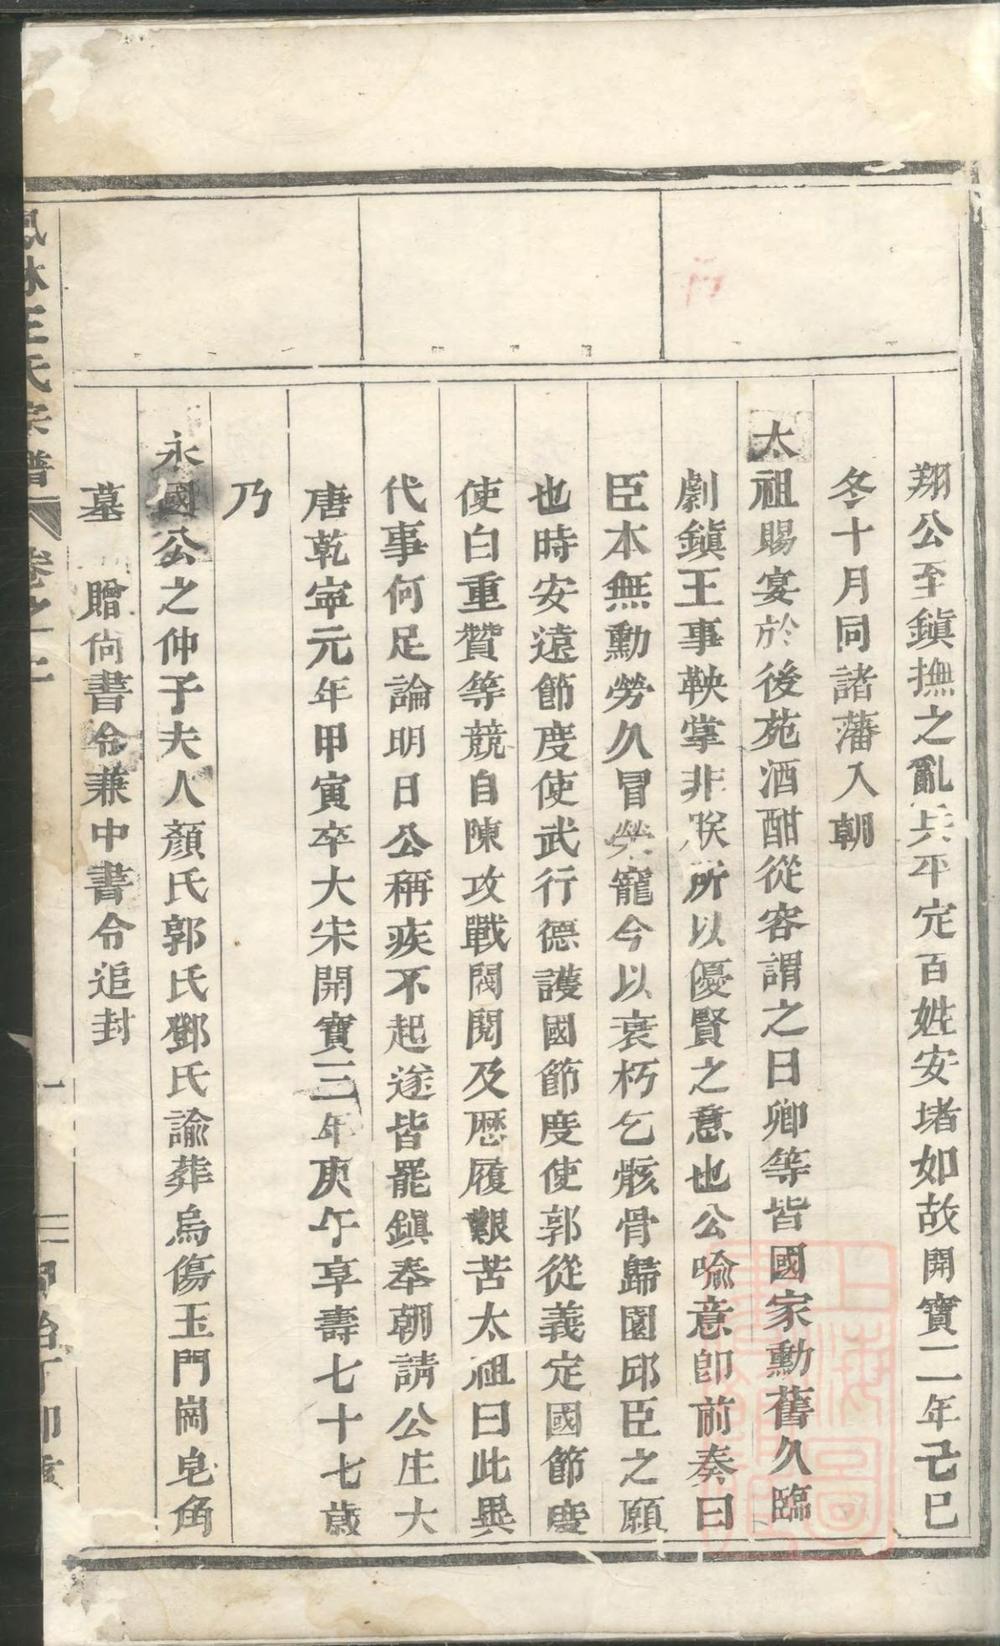 翔公至鎮撫之亂兵平定百姓安堵如故開寶二年己巳
冬十月同諸藩入朝
太祖賜宴於後苑酒酣從容謂之曰卿等皆國家勳舊久臨
劇鎮王事鞅掌非朕所以優賢之意也公喻意即前奏曰
臣本無勳勞久冒榮寵今以衰朽乞骸骨歸園邱臣之願
也時安遠節度使武行德護國節度使郭從義定國節度
使白重贊等競自陳攻戰閥閱及歷履艱苦太祖曰此異
代事何足論明日公稱疾不起遂皆罷鎮奉朝請公庄大
唐乾寜元年甲寅卒大宋開寶三年庚午享壽七十七歲
乃
永國公之仲子夫人顏氏郭氏鄧氏諭葬烏傷玉門崗皂角
墓 贈尚書令兼中書令追封
鳳林王氏宗譜 卷之 一